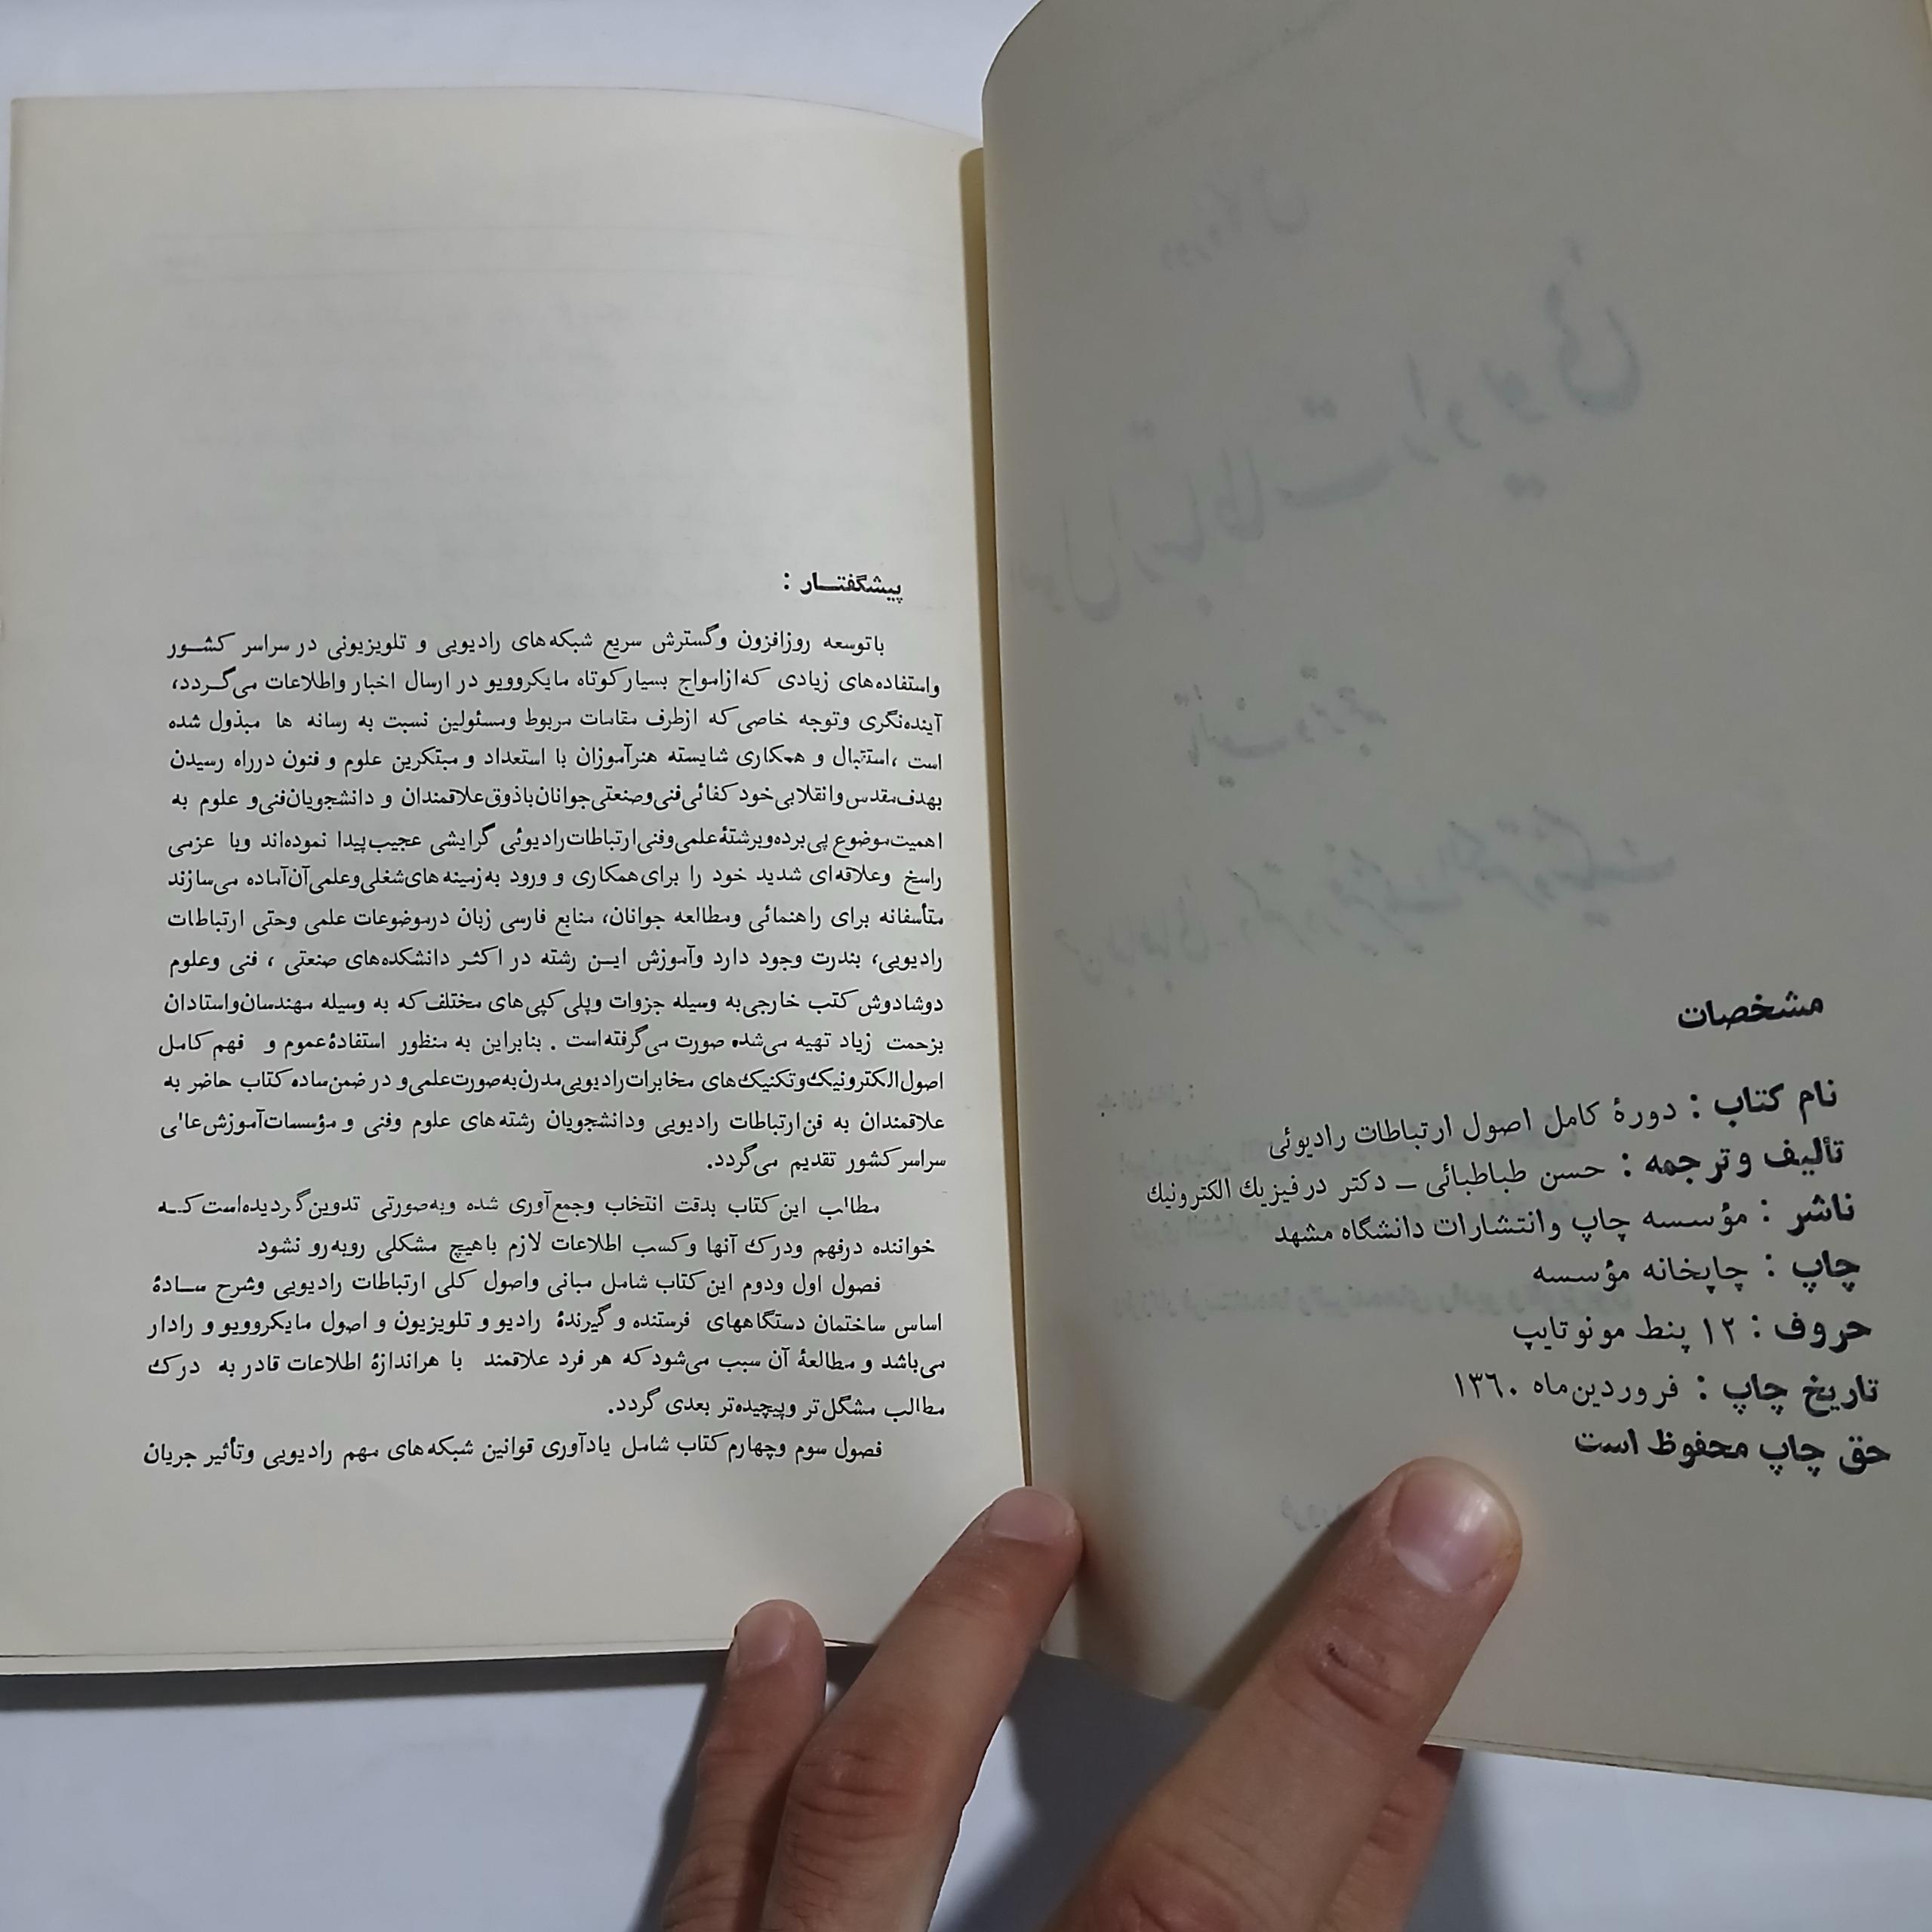 مشخصات
نام کتاب : دورهٔ کامل اصول ارتباطات رادیوئی
تألیف و ترجمه : حسن طباطبائی – دکتر در فیزیك الکترونیك
ناشر : مؤسسه چاپ وانتشارات دانشگاه مشهد
چاپ : چاپخانه مؤسسه
حروف : ۱۲ پنط مونوتایپ
تاریخ چاپ : فروردین‌ماه ۱۳۶۰
حق چاپ محفوظ است
پیشگفتـار :
باتوسعه روزافزون وگسترش سریع شبکه‌های رادیویی و تلویزیونی در سراسر کشـور
واستفاده‌های زیادی که‌ازامواج بسیارکوتاه مایکروویو در ارسال اخبار واطلاعات می‌گـردد،
آینده‌نگری وتوجه خاصی‌که ازطرف مقامات مربوط ومسئولین نسبت به رسانه ها مبذول شده
است ،استقبال و همکاری شایسته هنرآموزان با استعداد و مبتکرین علوم و فنون درراه رسیدن
بهدف‌مقدس‌وانقلابی‌خود کفائی‌فنی‌وصنعتی‌جوانان‌باذوق‌علاقمندان و دانشجویان‌فنی‌و علوم به
اهمیت‌موضوع پی‌برده‌وبرشتهٔ‌علمی‌وفنی‌ارتباطات‌رادیوئی گرایشی عجیب‌پیدا نموده‌اند وبا عزمی
راسخ وعلاقه‌ای شدید خود را برای‌همکاری و ورود به‌زمینه‌های‌شغلی‌وعلمی‌آن‌آماده می‌سازند
متأسفانه برای راهنمائی ومطالعه جوانان، منابع فارسی زبان درموضوعات علمی وحتی ارتباطات
رادیویی، بندرت وجود دارد وآموزش ایـن رشته در اکثر دانشکده‌های صنعتی ، فنی وعلوم
دوشادوش‌کتب خارجی‌به وسیله جزوات وپلی‌کپی‌های مختلف‌که به وسیله مهندسان‌واستادان
بزحمت زیاد تهیه می‌شده صورت می‌گرفته‌است . بنابراین به منظور استفادهٔ‌عموم و فهم کامل
اصول‌الکترونیك‌وتکنیك‌های مخابرات‌رادیویی‌مدرن‌به‌صورت‌علمی‌و در ضمن‌ساده‌کتاب حاضر به
علاقمندان به فن‌ارتباطات رادیویی ودانشجویان رشته‌های علوم وفنی و مؤسسات‌آموزش‌عالی
سراسر‌کشور تقدیم می‌گردد.
مطالب این‌کتاب بدقت انتخاب وجمع‌آوری شده وبه‌صورتی تدوین‌گردیده‌است‌کـه
خواننده درفهم ودرك آنها وکسب اطلاعات لازم باهیچ مشکلی روبه‌رو نشود
فصول اول ودوم این‌کتاب شامل مبانی واصول کلی ارتباطات رادیویی وشرح سـادهٔ
اساس ساختمان دستگاههای فرستنده و گیرندهٔ رادیو و تلویزیون و اصول مایکروویو و رادار
می‌باشد و مطالعهٔ آن سبب می‌شود‌که هر فرد علاقمند با هراندازهٔ اطلاعات قادر به درك
مطالب مشگل‌تر وپیچیده‌تر بعدی گردد.
فصول سوم وچهارم‌کتاب شامل یادآوری قوانین شبکه‌های مهم رادیویی وتأثیر جریان